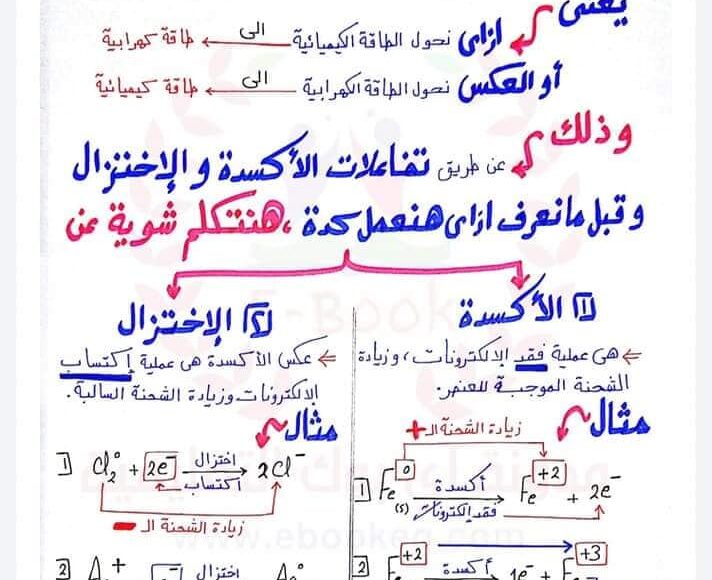 يعنى
ازاى نحول الطاقة الكيميائية الى طاقة كهربية
أو العكس نحول الطاقة الكهربية الى طاقة كيميائية
وذلك
عن طريق تفاعلات الأكسدة و الإختزال
و قبل مانعرف ازاى هنعمل كدة ، هنتكلم شوية عن
1 الأكسدة
هى عملية فقد الإلكترونات ، وزيادة
الشحنة الموجبة للعنصر.
مثال
زيادة الشحنة الـ +
1 Fe⁰ (s) أكسدة فقد إلكترونات Fe⁺² + 2e⁻
2 +2 أكسدة +3 1e⁻ + Fe
2 الإختزال
عكس الأكسدة هى عملية إكتساب
الإلكترونات وزيادة الشحنة السالبة.
مثال
1 Cl₂⁰ + 2e⁻ اختزال اكتساب 2Cl⁻
زيادة الشحنة الـ -
2 A + اختزال A⁰
www.ebookeg.com